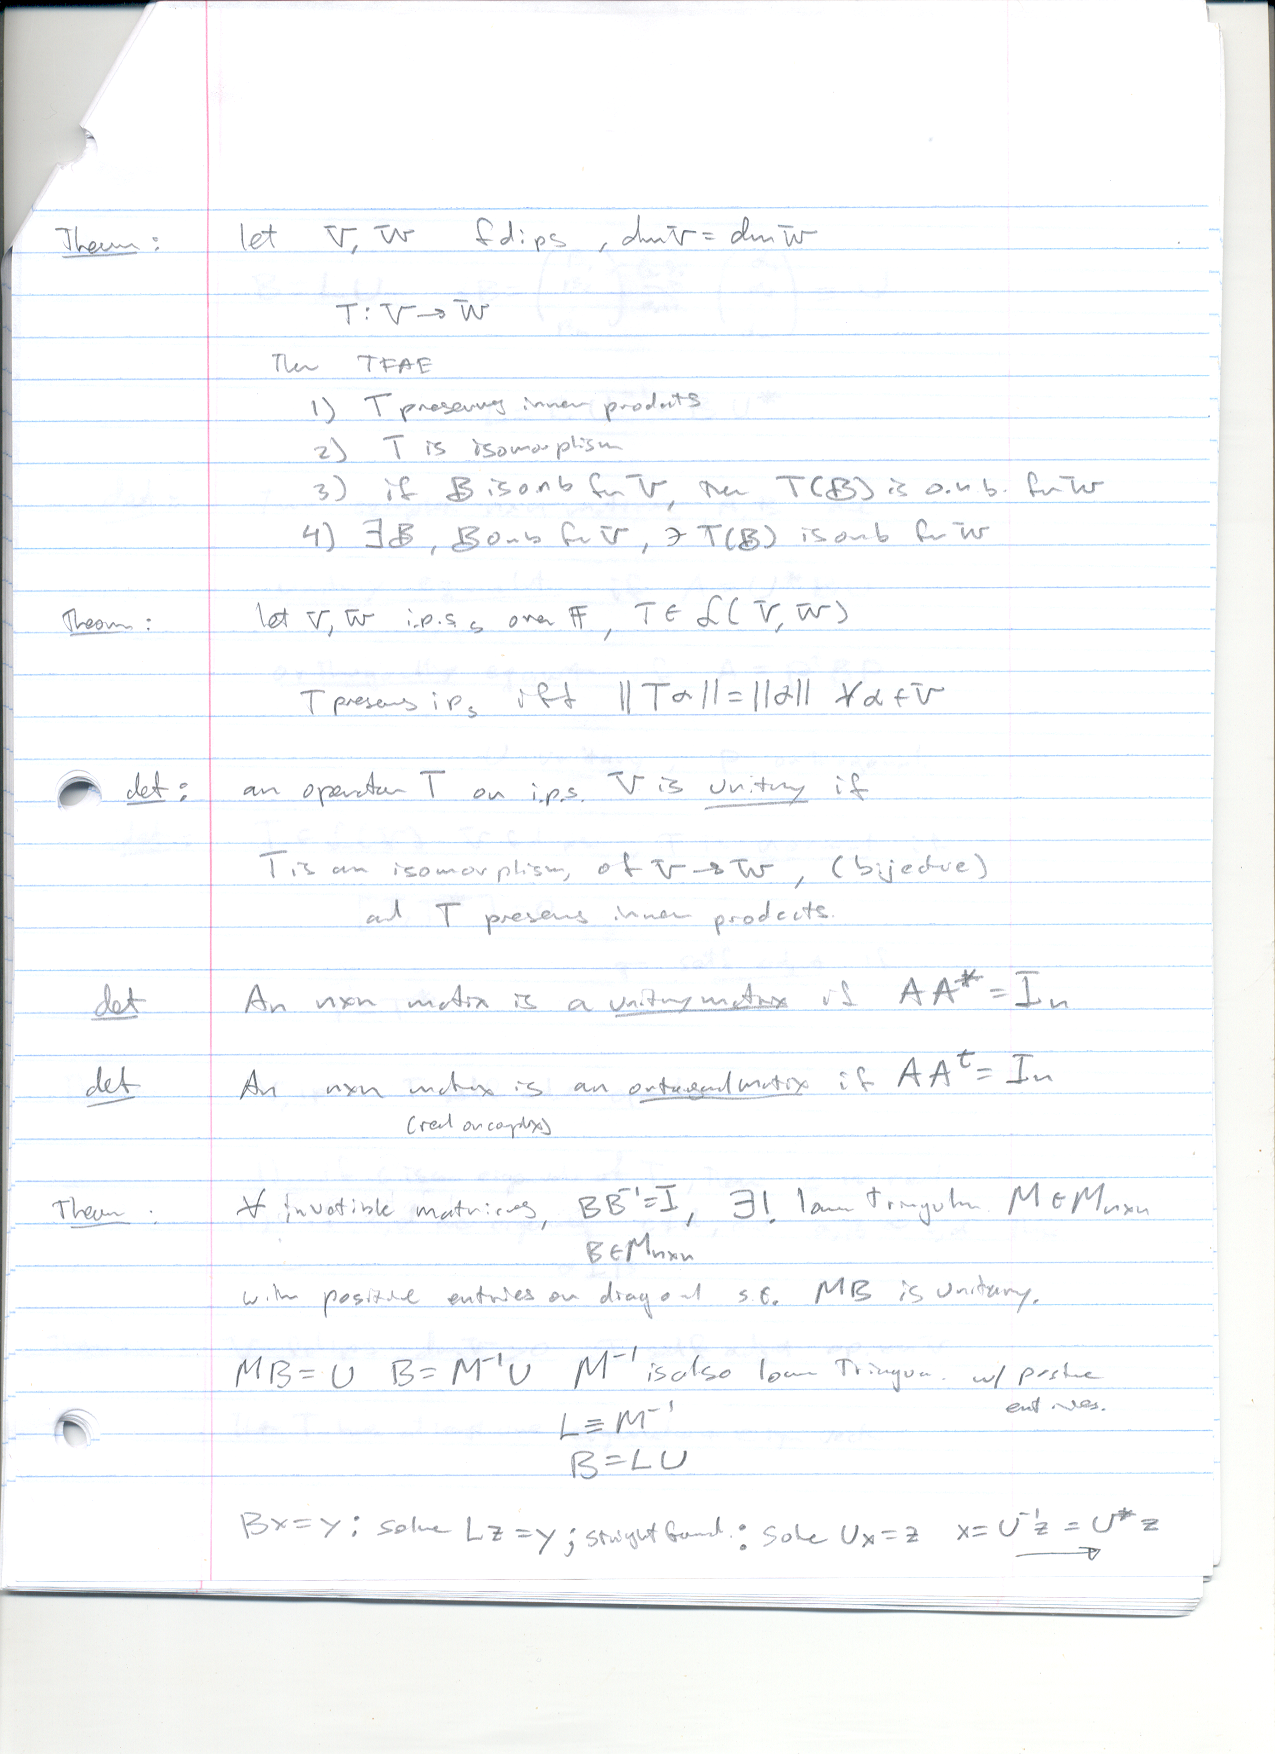 Theorem: let V, W fdips, dim V = dim W
T: V → W
Then TFAE
1) T preserves inner products
2) T is isomorphism
3) if B is onb for V, then T(B) is o.n.b. for W
4) ∃B, B onb for V, ∋ T(B) is onb for W
Theorem: let V, W i.p.s.s over F, T ∈ L(V, W)
T preserves ips iff ||Tα|| = ||α|| ∀α ∈ V
def: an operator T on i.p.s. V is unitary if
T is an isomorphism, of V → W, (bijective)
and T preserves inner products.
def An nxn matrix is a unitary matrix if AA* = Iₙ
def An nxn matrix is an orthogonal matrix if AAᵗ = Iₙ
(real or complex)
Theorem: ∀ invertible matrices, BB⁻¹ = I, ∃! lower triangular M ∈ Mₙₓₙ
B ∈ Mₙₓₙ
with positive entries on diagonal s.t. MB is unitary.
MB = U B = M⁻¹U M⁻¹ is also lower Triangular w/ positive
entries.
L ≡ M⁻¹
B = LU
Bx = y; solve Lz = y; straight forward.: solve Ux = z x = U⁻¹z = U*z